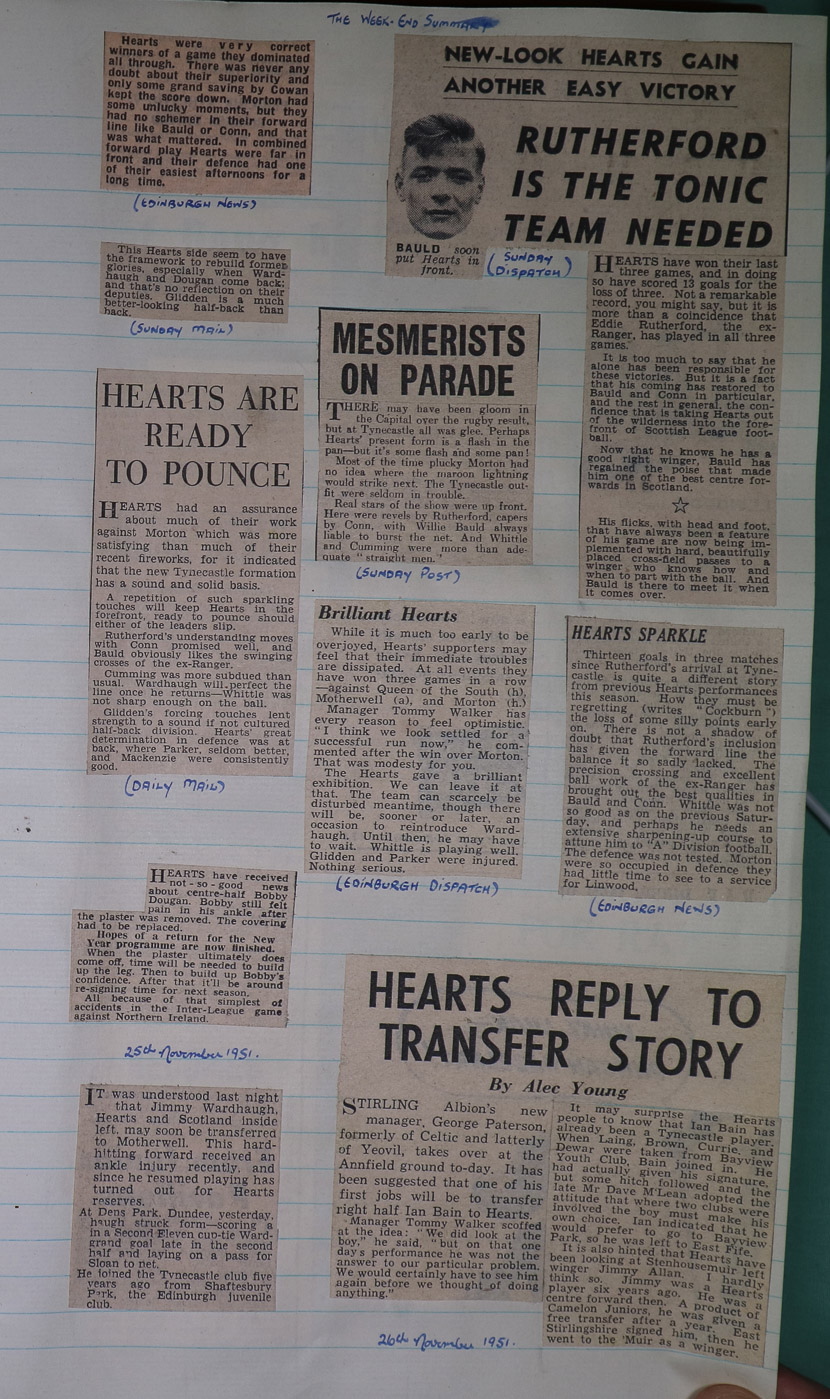 THE WEEK-END SUMMARY
Hearts were very correct
winners of a game they dominated
all through. There was never any
doubt about their superiority and
only some grand saving by Cowan
kept the score down. Morton had
some unlucky moments, but they
had no schemer in their forward
line like Bauld or Conn, and that
was what mattered. In combined
forward play Hearts were far in
front and their defence had one
of their easiest afternoons for a
long time.
(EDINBURGH NEWS)
This Hearts side seem to have
the framework to rebuild former
glories, especially when Ward-
haugh and Dougan come back;
and that's no reflection on their
deputies. Glidden is a much
better-looking half-back than
back.
(SUNDAY MAIL)
HEARTS ARE
READY
TO POUNCE
HEARTS had an assurance
about much of their work
against Morton which was more
satisfying than much of their
recent fireworks, for it indicated
that the new Tynecastle formation
has a sound and solid basis.
A repetition of such sparkling
touches will keep Hearts in the
forefront, ready to pounce should
either of the leaders slip.
Rutherford's understanding moves
with Conn promised well, and
Bauld obviously likes the swinging
crosses of the ex-Ranger.
Cumming was more subdued than
usual. Wardhaugh will perfect the
line once he returns—Whittle was
not sharp enough on the ball.
Glidden's forcing touches lent
strength to a sound if not cultured
half-back division. Hearts' great
determination in defence was at
back, where Parker, seldom better,
and Mackenzie were consistently
good.
(DAILY MAIL)
HEARTS have received
not-so-good news
about centre-half Bobby
Dougan. Bobby still felt
pain in his ankle after
the plaster was removed. The covering
had to be replaced.
Hopes of a return for the New
Year programme are now finished.
When the plaster ultimately does
come off, time will be needed to build
up the leg. Then to build up Bobby's
confidence. After that it'll be around
re-signing time for next season.
All because of that simplest of
accidents in the Inter-League game
against Northern Ireland.
25th November 1951.
IT was understood last night
that Jimmy Wardhaugh,
Hearts and Scotland inside
left, may soon be transferred
to Motherwell. This hard-
hitting forward received an
ankle injury recently, and
since he resumed playing has
turned out for Hearts
reserves.
At Dens Park, Dundee, yesterday,
in a Second Eleven cup-tie Ward-
haugh struck form—scoring a
grand goal late in the second
half and laying on a pass for
Sloan to net.
He joined the Tynecastle club five
years ago from Shaftesbury
Park, the Edinburgh juvenile
club.
NEW-LOOK HEARTS GAIN
ANOTHER EASY VICTORY
RUTHERFORD
IS THE TONIC
TEAM NEEDED
BAULD soon
put Hearts in
front.
(SUNDAY
DISPATCH)
HEARTS have won their last
three games, and in doing
so have scored 13 goals for the
loss of three. Not a remarkable
record, you might say, but it is
more than a coincidence that
Eddie Rutherford, the ex-
Ranger, has played in all three
games.
It is too much to say that he
alone has been responsible for
these victories. But it is a fact
that his coming has restored to
Bauld and Conn in particular,
and the rest in general, the con-
fidence that is taking Hearts out
of the wilderness into the fore-
front of Scottish League foot-
ball.
Now that he knows he has a
good right winger, Bauld has
regained the poise that made
him one of the best centre for-
wards in Scotland.
☆
His flicks, with head and foot,
that have always been a feature
of his game are now being im-
plemented with hard, beautifully
placed cross-field passes to a
winger who knows how and
when to part with the ball. And
Bauld is there to meet it when
it comes over.
MESMERISTS
ON PARADE
THERE may have been gloom in
the Capital over the rugby result,
but at Tynecastle all was glee. Perhaps
Hearts' present form is a flash in the
pan—but it's some flash and some pan!
Most of the time plucky Morton had
no idea where the maroon lightning
would strike next. The Tynecastle out-
fit were seldom in trouble.
Real stars of the show were up front.
Here were revels by Rutherford, capers
by Conn, with Willie Bauld always
liable to burst the net. And Whittle
and Cumming were more than ade-
quate "straight men."
(SUNDAY POST)
Brilliant Hearts
While it is much too early to be
overjoyed, Hearts' supporters may
feel that their immediate troubles
are dissipated. At all events they
have won three games in a row
—against Queen of the South (h),
Motherwell (a), and Morton (h.)
Manager Tommy Walker has
every reason to feel optimistic.
"I think we look settled for a
successful run now," he com-
mented after the win over Morton.
That was modesty for you.
The Hearts gave a brilliant
exhibition. We can leave it at
that. The team can scarcely be
disturbed meantime, though there
will be, sooner or later, an
occasion to reintroduce Ward-
haugh. Until then, he may have
to wait. Whittle is playing well.
Glidden and Parker were injured.
Nothing serious.
(EDINBURGH DISPATCH)
HEARTS SPARKLE
Thirteen goals in three matches
since Rutherford's arrival at Tyne-
castle is quite a different story
from previous Hearts performances
this season. How they must be
regretting (writes "Cockburn")
the loss of some silly points early
on. There is not a shadow of
doubt that Rutherford's inclusion
has given the forward line the
balance it so sadly lacked. The
precision crossing and excellent
ball work of the ex-Ranger has
brought out the best qualities in
Bauld and Conn. Whittle was not
so good as on the previous Satur-
day, and perhaps he needs an
extensive sharpening-up course to
attune him to "A" Division football.
The defence was not tested. Morton
were so occupied in defence they
had little time to see to a service
for Linwood.
(EDINBURGH NEWS)
HEARTS REPLY TO
TRANSFER STORY
By Alec Young
STIRLING Albion's new
manager, George Paterson,
formerly of Celtic and latterly
of Yeovil, takes over at the
Annfield ground to-day. It has
been suggested that one of his
first jobs will be to transfer
right half Ian Bain to Hearts.
Manager Tommy Walker scoffed
at the idea: "We did look at the
boy," he said, "but on that one
day's performance he was not the
answer to our particular problem.
We would certainly have to see him
again before we thought of doing
anything."
It may surprise the Hearts
people to know that Ian Bain has
already been a Tynecastle player.
When Laing, Brown, Currie, and
Dewar were taken from Bayview
Youth Club, Bain joined in. He
had actually given his signature,
but some hitch followed and the
late Mr Dave M'Lean adopted the
attitude that where two clubs were
involved the boy must make his
own choice. Ian indicated that he
would prefer to go to Bayview
Park, so he was left to East Fife.
It is also hinted that Hearts have
been looking at Stenhousemuir left
winger Jimmy Allan. I hardly
think so. Jimmy was a Hearts
player six years ago. He was a
centre forward then. A product of
Camelon Juniors, he was given a
free transfer after a year. East
Stirlingshire signed him, then he
went to the 'Muir as a winger.
26th November 1951.